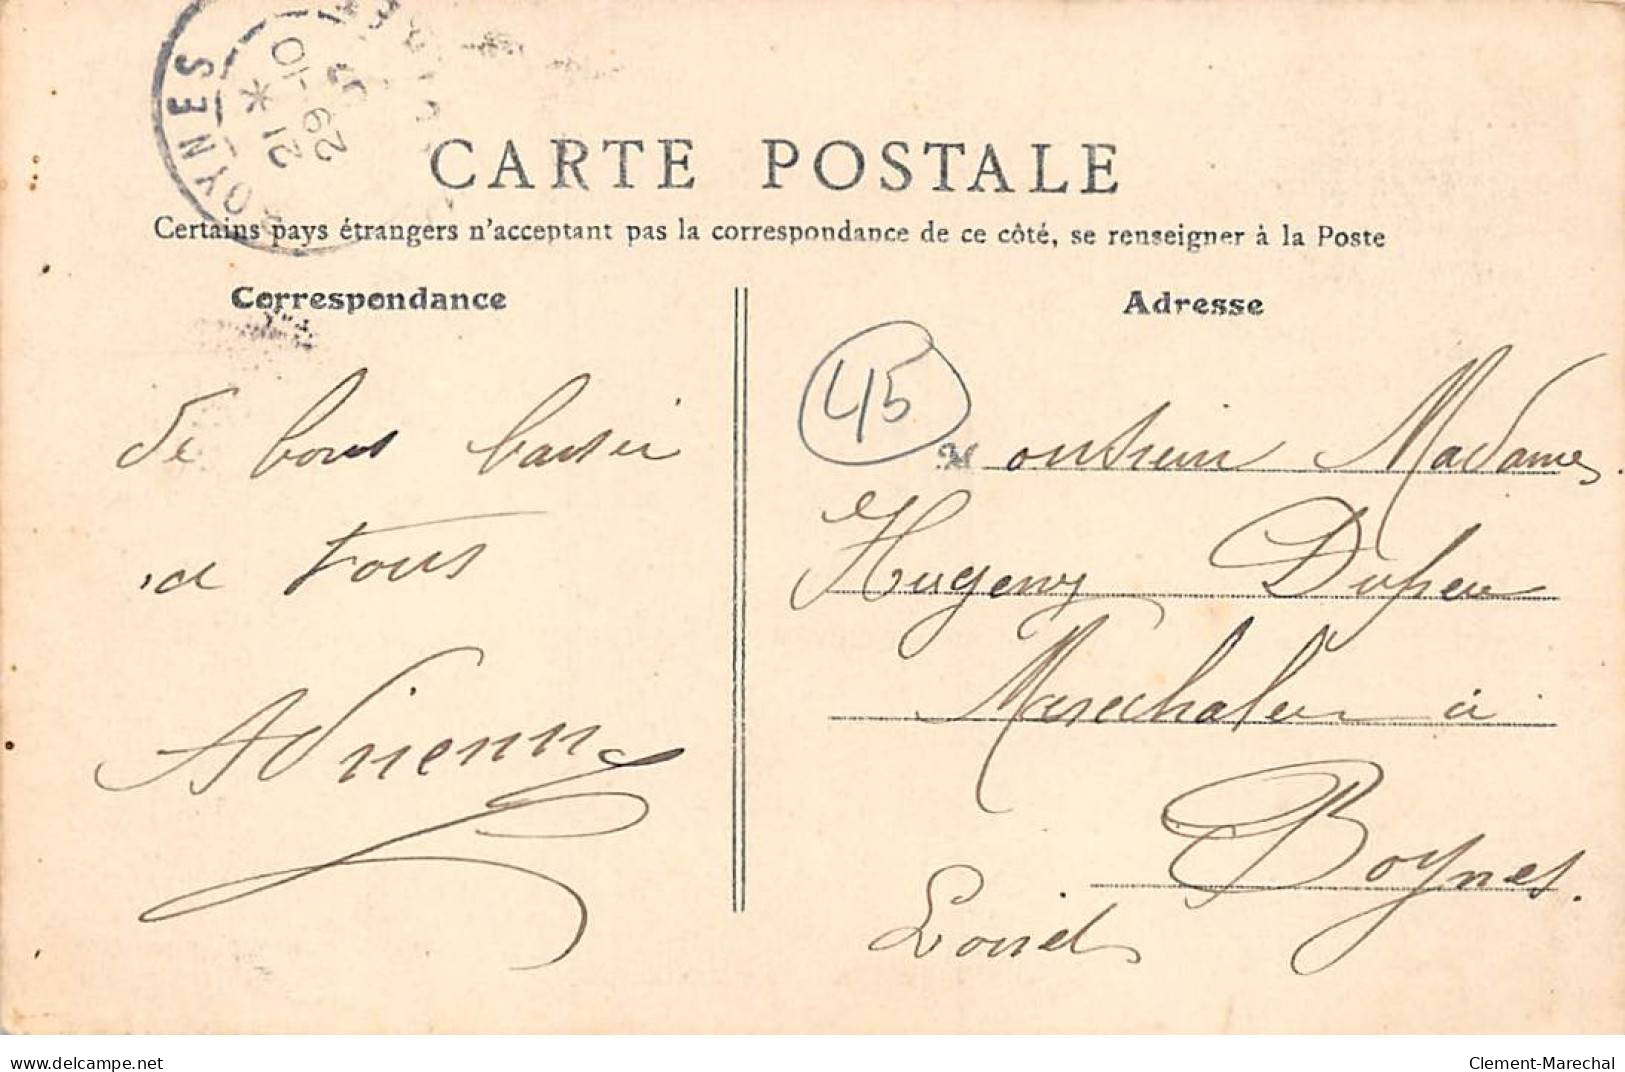 BOYNES
21
29-10
CARTE POSTALE
Certains pays étrangers n'acceptant pas la correspondance de ce côté, se renseigner à la Poste
Correspondance
Adresse
45
de bons baiser
a tous
Adrienne
Monsieur Madame
Hugeny
Marechaler à
Boynes.
Loiret
www.delcampe.net
Clement-Marechal